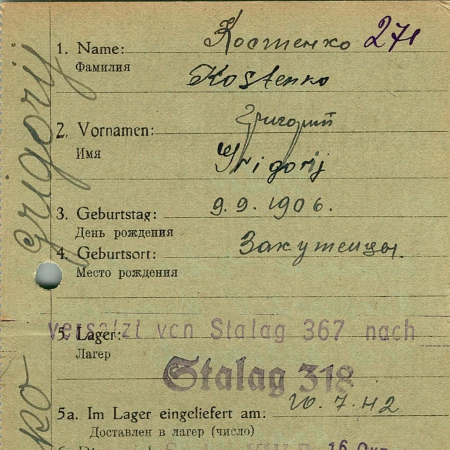 1. Name: Костенко 271
Фамилия Kostenko
2. Vornamen: Григорий
Имя Grigorij
3. Geburtstag: 9.9.1906.
День рождения
4. Geburtsort: Закутенцы.
Место рождения
versetzt von Stalag 367 nach
5. Lager:
Лагер
Stalag 318
5a. Im Lager eingeliefert am: 20.7.42
Доставлен в лагер (число)
16 Окт
grigorij
ko